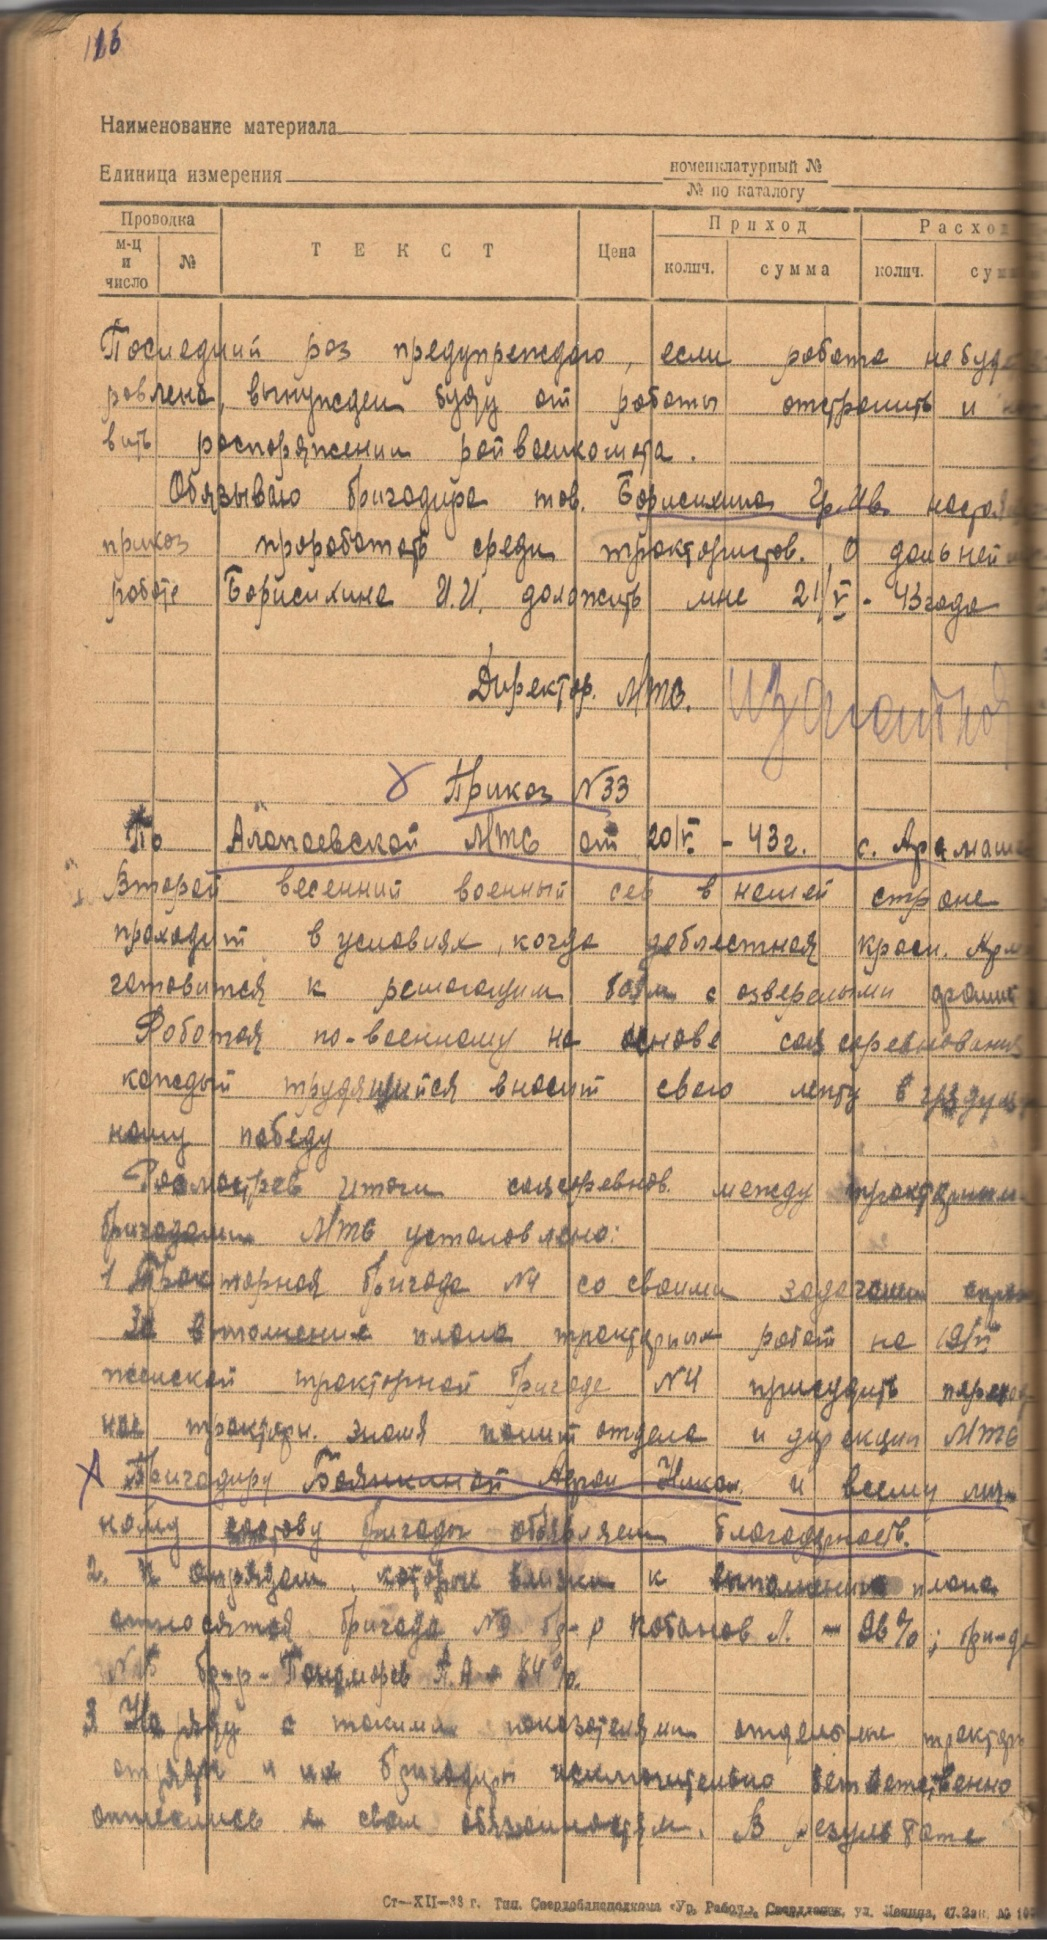 Наименование материала
Единица измерения номенклатурный №
№ по каталогу
Проводка Приход Расход
м-ц и число № ТЕКСТ Цена колич. сумма колич.
Последний раз предупреждаю, если работа не буд
ровлена, вынужден буду от работы отстронить и
вить распоряжении райвоенкомата.
Обязываю бригадира тов. Борисихина Гр. Ив. наста
приказ проработать среди трактористов. О дальней
работе Борисихина И.И. доложить мне 21/V - 43 года
Директор. МТС.
Приказ №33
По Алапаевской МТС от 20/V - 43 г. с. Арамаше
Второй весенний военный сев в нашей стране
проходит в условиях, когда доблестная красн. Арм
готовится к решающим боям с озверелыми
Работая по-военному на основе соцсоревнования
каждый трудящийся вносит свою лепту в
ному победу
Расмотрев итоги соцсоревнов. между тракторными
бригадами МТС установлено:
1 Тракторная бригада №4 со своими задачами
За выполнение плана тракторных работ на
женской тракторной бригаде №4 присудить переход
ное трактрн. знамя полит отдела и дирекции МТС
Бригадиру Никол. и всему лич-
ному составу бригады объявляем благодарность.
2. К отрядам, которые близки к выполнению плана
относятся бригада №9 бр-р Кабанов Л. - 96%; бри-да
бр-р - Пономарев А.А - 84%.
3 На ряду с такими показателями отдельные трактор
отряды и их бригадиры исключительно безответственно
отнеслись к свои обязанностям. В результате
Ст—XII—38 г. Тип. Свердоблисполкома «Ур. Рабоч.», Свердловск, ул. Ленина, 47. Зак. №